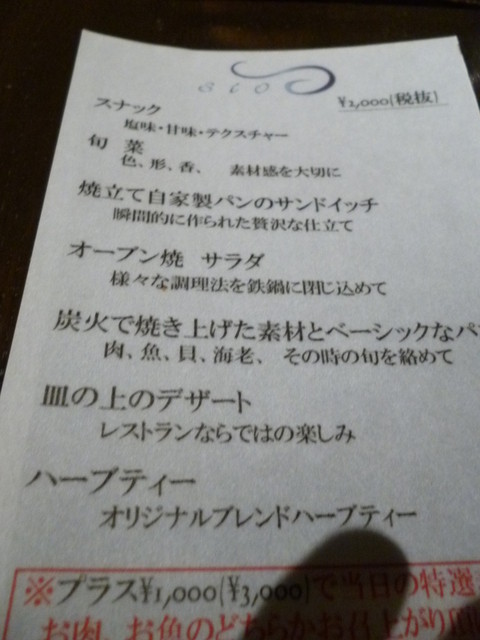 sio
¥2,000(税抜)
スナック
塩味・甘味・テクスチャー
旬 菜
色、形、香、 素材感を大切に
焼立て自家製パンのサンドイッチ
瞬間的に作られた贅沢な仕立て
オーブン焼 サラダ
様々な調理法を鉄鍋に閉じ込めて
炭火で焼き上げた素材とベーシックなパ
肉、魚、貝、海老、 その時の旬を絡めて
皿の上のデザート
レストランならではの楽しみ
ハーブティー
オリジナルブレンドハーブティー
※プラス¥1,000(¥3,000)で当日の特選
お肉、お魚のどちらかお召上がり